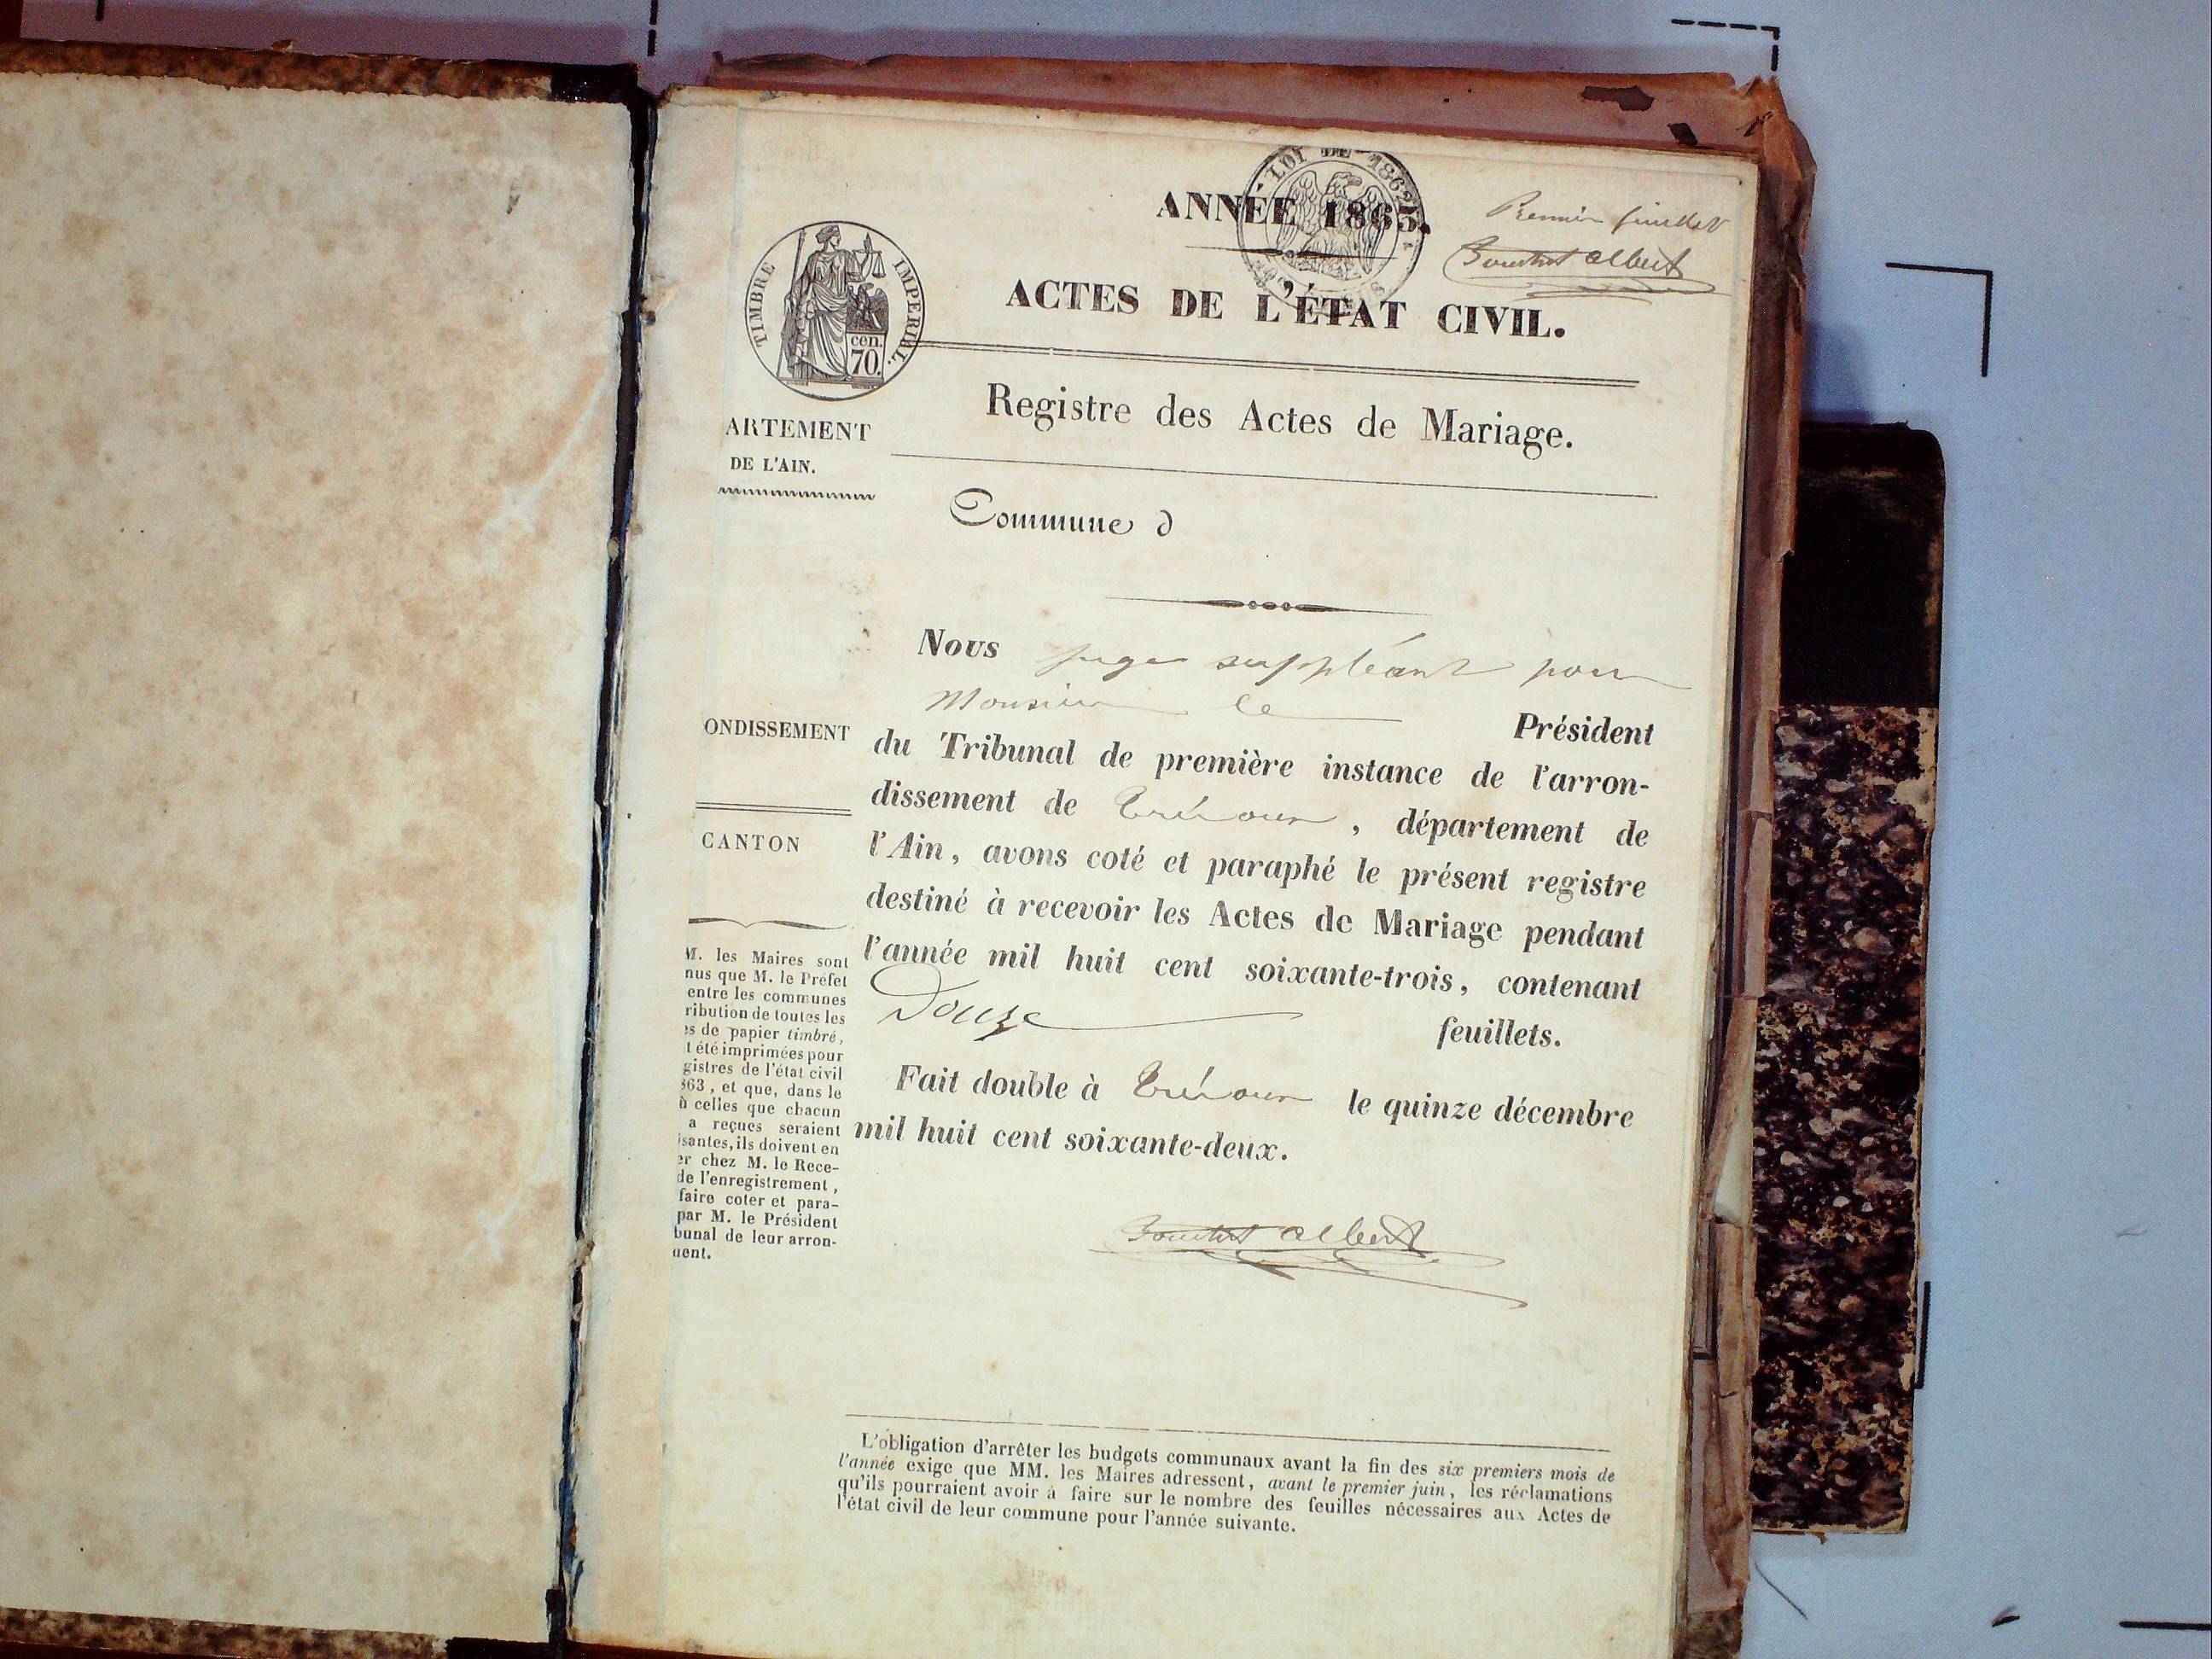 LOI DE 1862
ANNÉE 1863.
Premier feuillet
Albert
TIMBRE IMPERIAL.
cen.
70.
ACTES DE L'ÉTAT CIVIL.
Registre des Actes de Mariage.
ARTEMENT
DE L'AIN.
Commune d
Nous juge suppléant pour
Monsieur le Président
du Tribunal de première instance de l'arron-
dissement de Trévoux, département de
l'Ain, avons coté et paraphé le présent registre
destiné à recevoir les Actes de Mariage pendant
l'année mil huit cent soixante-trois, contenant
Douze feuillets.
Fait double à Trévoux le quinze décembre
mil huit cent soixante-deux.
Albert
ONDISSEMENT
CANTON
M. les Maires sont
nus que M. le Préfet
entre les communes
ribution de toutes les
es de papier timbré,
t été imprimées pour
gistres de l'état civil
863, et que, dans le
ù celles que chacun
a reçues seraient
isantes, ils doivent en
er chez M. le Rece-
de l'enregistrement,
faire coter et para-
par M. le Président
bunal de leur arron-
ment.
L'obligation d'arrêter les budgets communaux avant la fin des six premiers mois de
l'année exige que MM. les Maires adressent, avant le premier juin, les réclamations
qu'ils pourraient avoir à faire sur le nombre des feuilles nécessaires aux Actes de
l'état civil de leur commune pour l'année suivante.